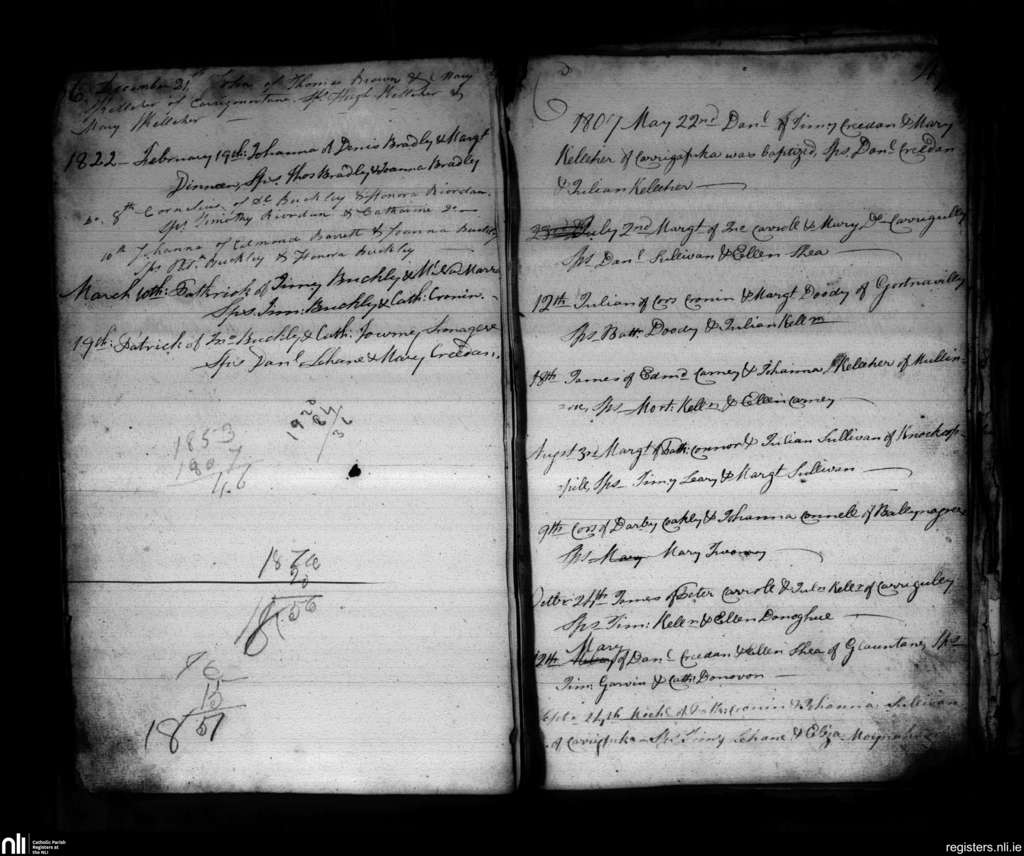 December 21st John of Thomas Brown & Mary
Kelleher of Carrigmartane, Sps Hugh Kelleher &
Mary Kelleher
1822 — February 19th: Johanna of Denis Bradly & Margt
Dinnean, Sps. Thos Bradly & Joanna Bradly
Do. 8th Cornelius of Dl Buckley & Honora Riordan
Sps Timothy Riordan & Catharine Do —
10th Johanna of Edmond Barrett & Joanna Buckley
Sps Buckley & Honora Buckley
March 10th: Pathrick of Timy Buckly &
Sps. Tim: Buckly & Cath: Cronin. -
19th: Patrick of Jno Buckly & Cath: Twomy
Sps Danl Lehane & Mary Creedan.
1853
1807
46
1920
84
136
1876
20
1856
76
15
1851
1807 May 22nd Danl of Timy Creedan & Mary
Kelleher of Carrigafuka was baptized, Sps. Danl Creedan
& Julian Kelleher —
July 2nd Margt of Jno Carroll & Mary Do Carrigulley
Sps Danl Sullivan & Ellen Shea —
12th Julian of Cors Cronin & Margt Doody of Gortnavilly
Sps Batt: Doody & Julian Kellr
18th James of Edmd Carney & Johanna Kelleher of Mullin-
Sps Mort: Kellr & Ellen Carney
Augst 3rd Margt of Path: Connor & Julian Sullivan of Knockop-
pill, Sps Timy Leary & Margt Sullivan —
9th Cors of Darby Coakly & Johanna Connell of Ballynagree
Sps Mary Mary Twomey —
Octbr 24th James of Peter Carroll & Kellr of Carriguley
Sps Tim: Kellr & Ellen Donoghue —
Mary
12th of Danl Creedan & Ellen Shea of Glauntane, Sps
Tim: Garvin & Cath: Donovon —
Septr 24th Michl of Path: Cronin & Johanna Sullivan
of Carrigafuka — Sps Timy Lehane & Eliza Moynahan
nli
Catholic Parish
Registers at
the NLI
registers.nli.ie